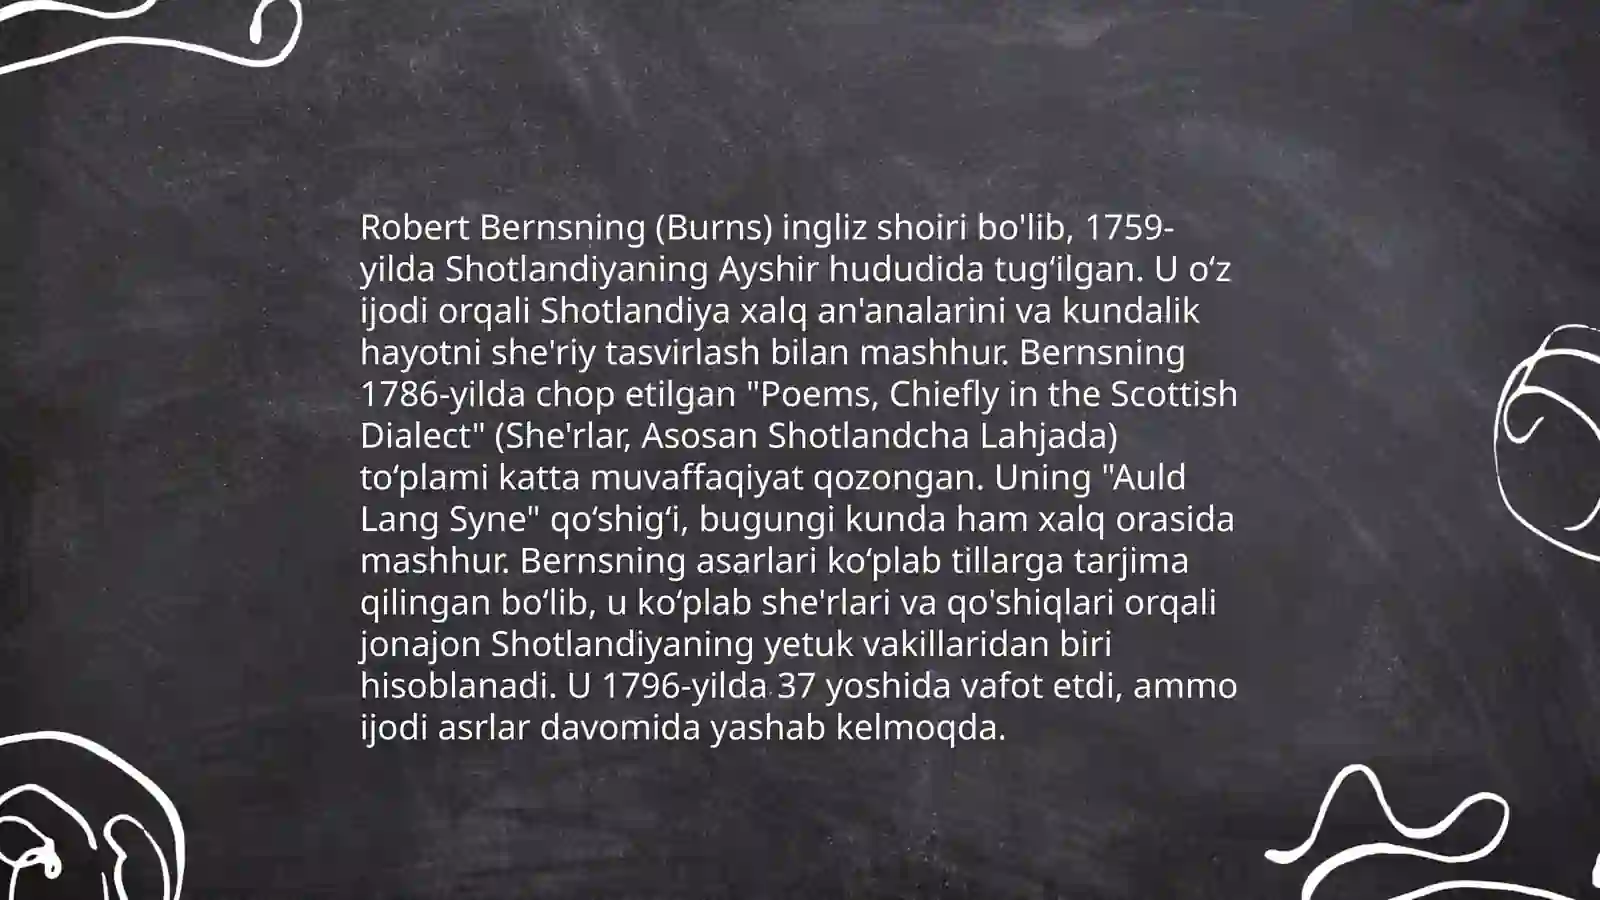 Robert Bernsning (Burns) ingliz shoiri bo'lib, 1759-
yilda Shotlandiyaning Ayshir hududida tug‘ilgan. U o‘z
ijodi orqali Shotlandiya xalq an'analarini va kundalik
hayotni she'riy tasvirlash bilan mashhur. Bernsning
1786-yilda chop etilgan "Poems, Chiefly in the Scottish
Dialect" (She'rlar, Asosan Shotlandcha Lahjada)
to‘plami katta muvaffaqiyat qozongan. Uning "Auld
Lang Syne" qo‘shig‘i, bugungi kunda ham xalq orasida
mashhur. Bernsning asarlari ko‘plab tillarga tarjima
qilingan bo‘lib, u ko‘plab she'rlari va qo'shiqlari orqali
jonajon Shotlandiyaning yetuk vakillaridan biri
hisoblanadi. U 1796-yilda 37 yoshida vafot etdi, ammo
ijodi asrlar davomida yashab kelmoqda.